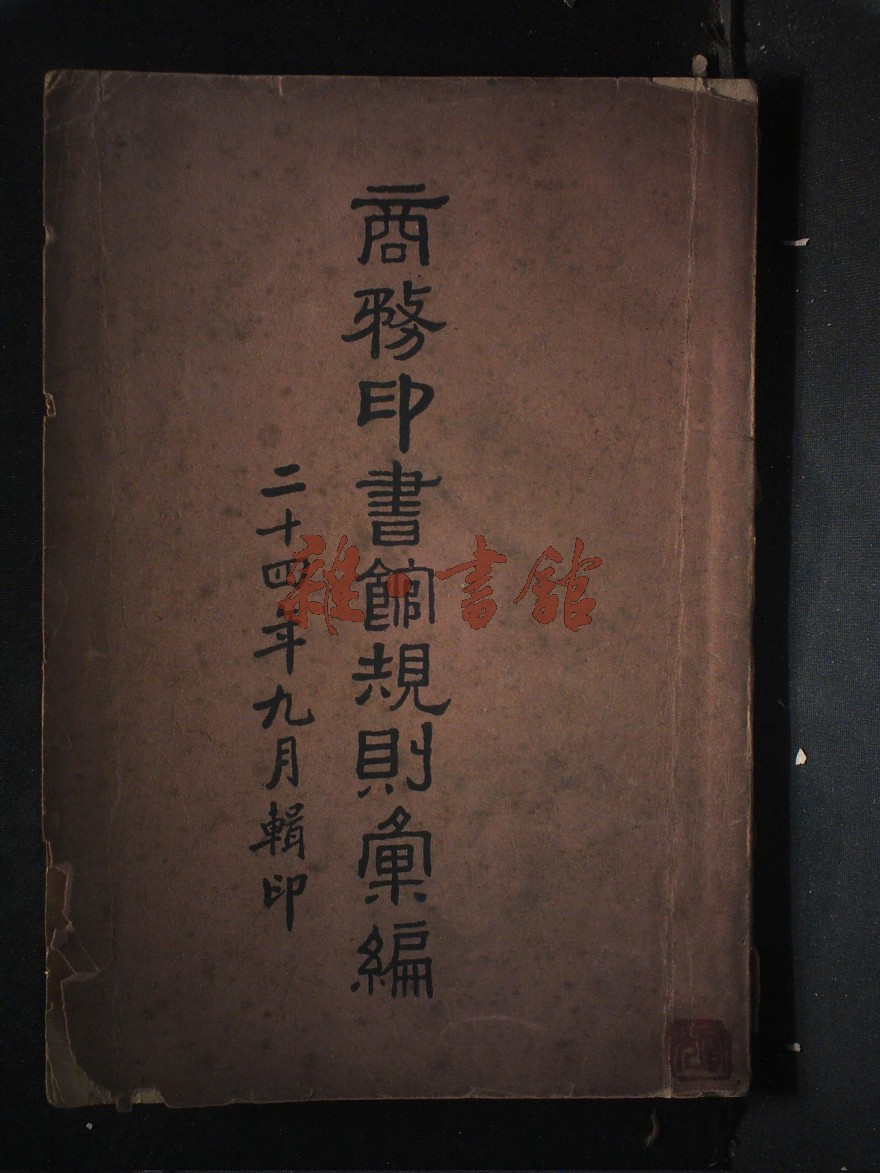 商務印書館規則彙編
二十四年九月輯印
雜·書館